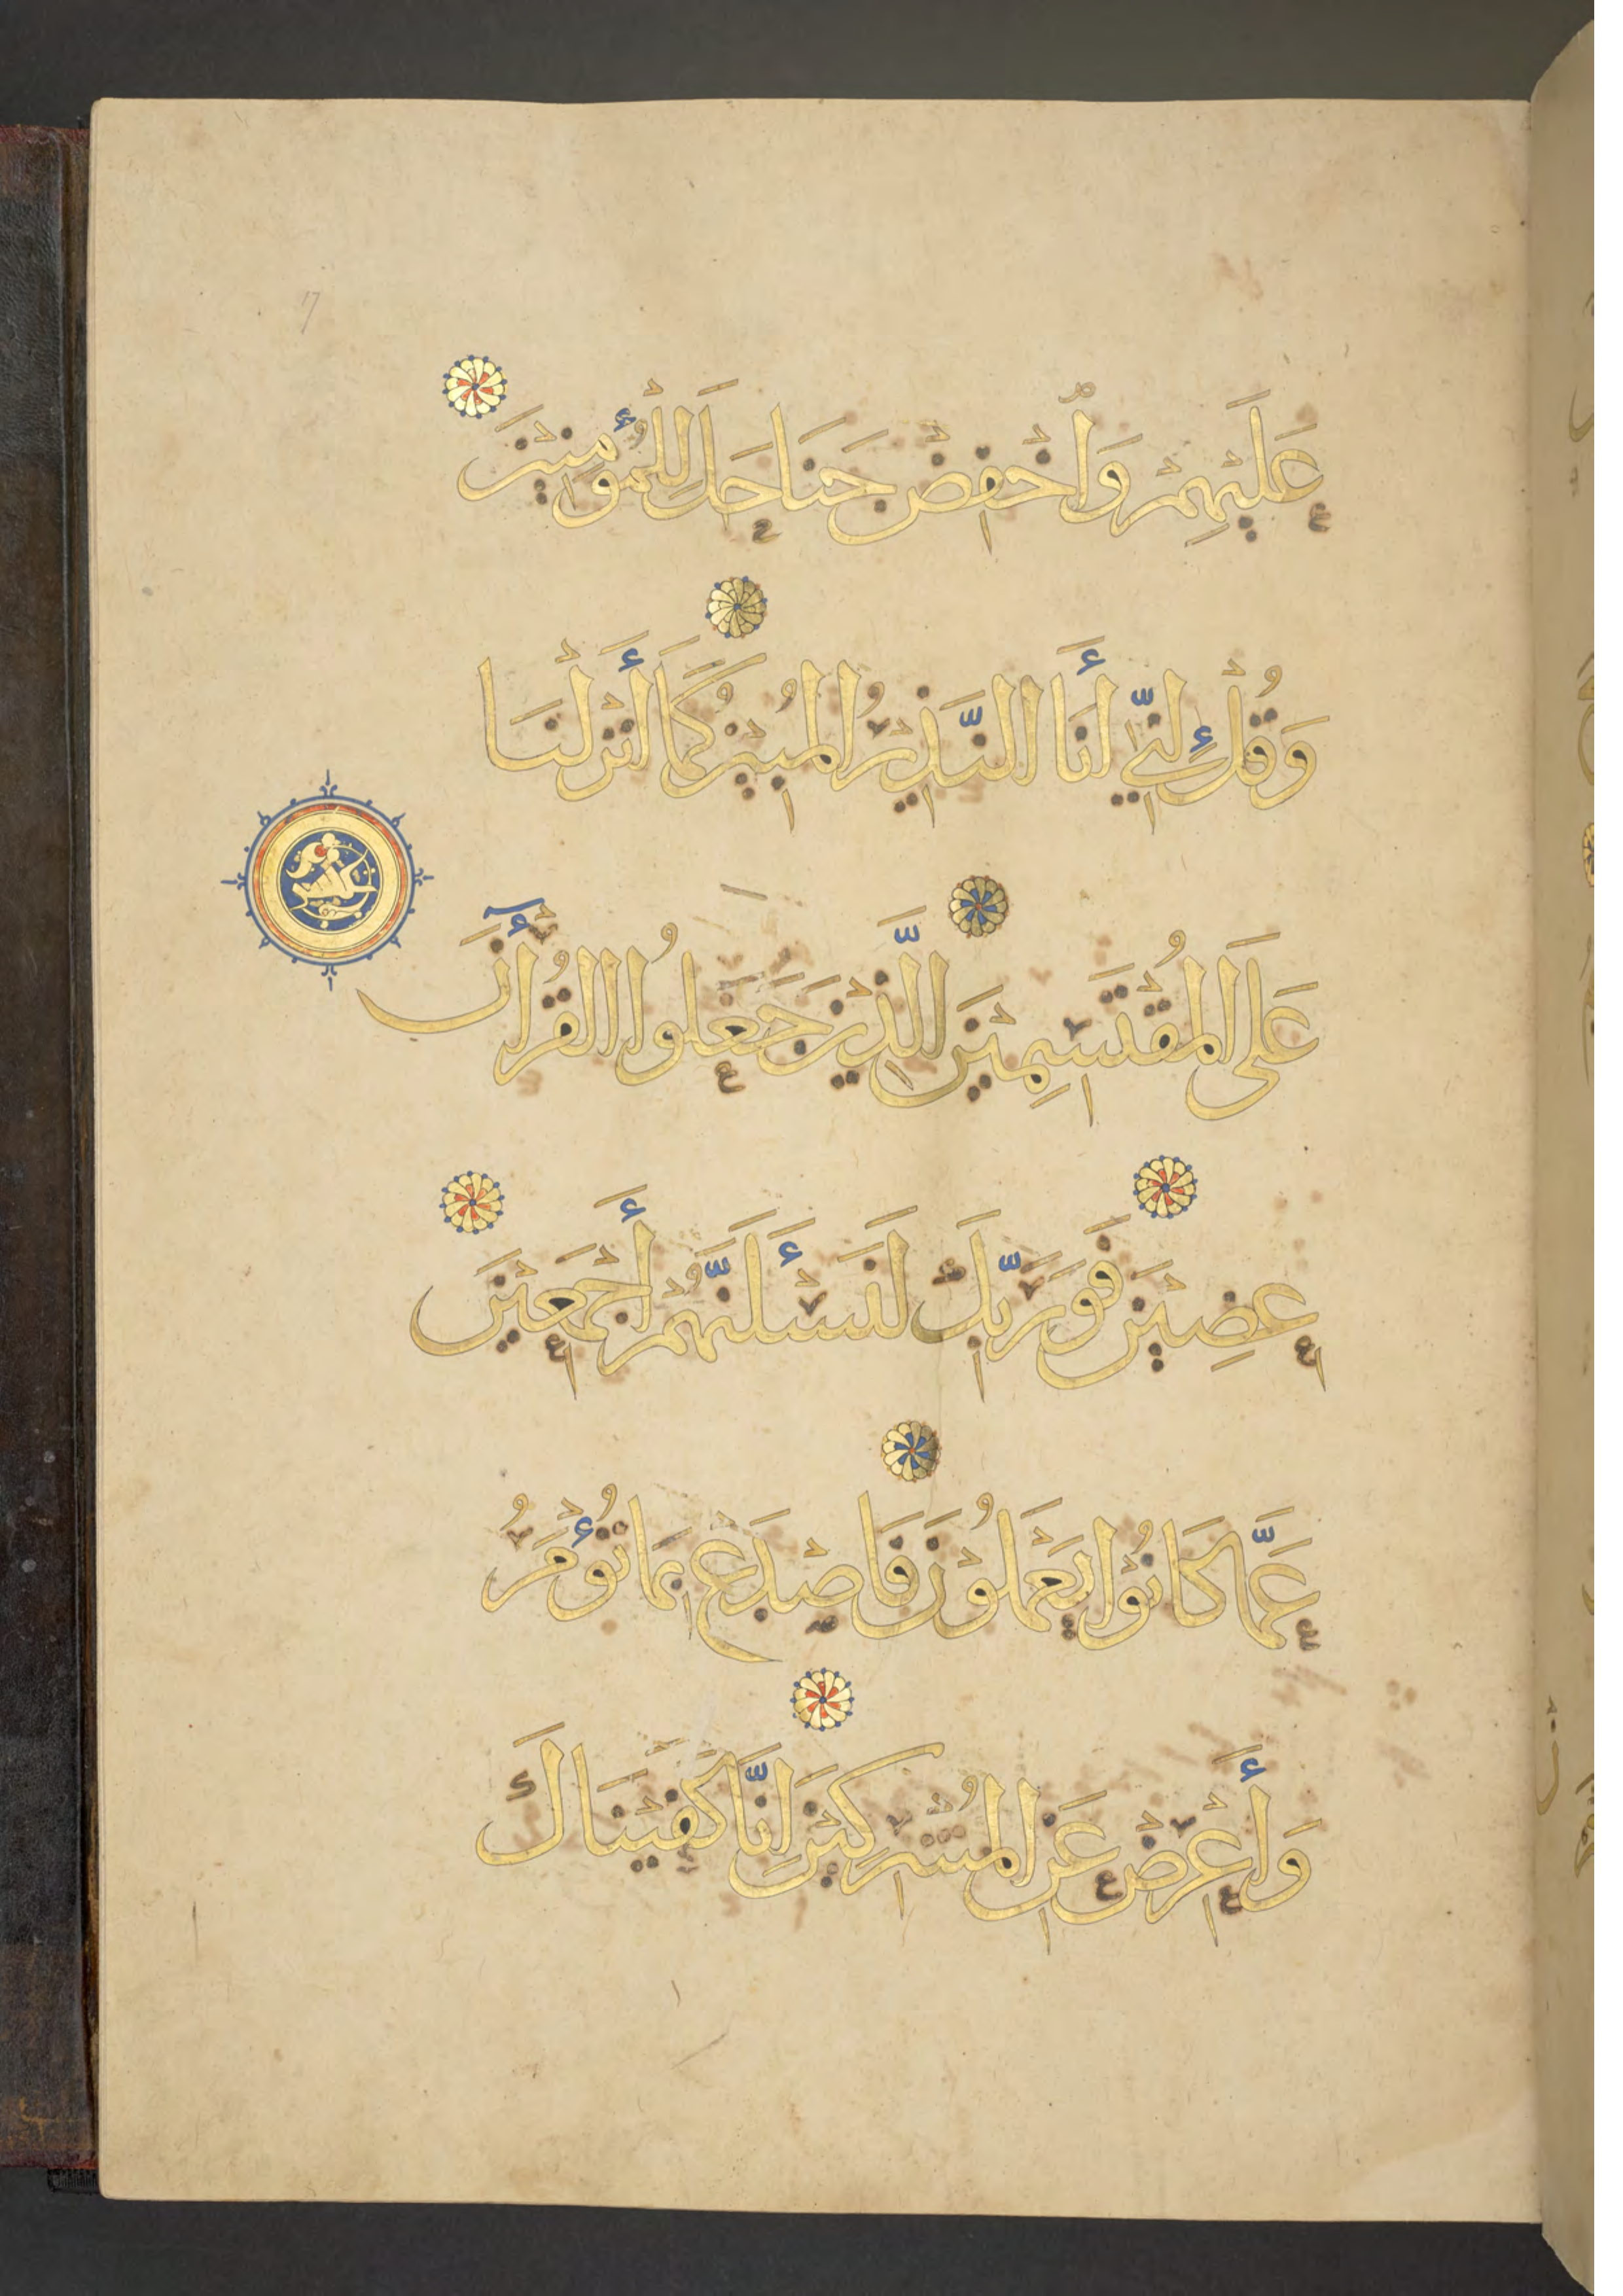 17
عَلَيْهِمْ وَاخْفِضْ جَنَاحَكَ لِلْمُؤْمِنِيْنَ
وَقُلْ إِنِّي أَنَا النَّذِيْرُ الْمُبِيْنُ كَمَا أَنْزَلْنَا
عَلَى الْمُقْتَسِمِيْنَ الَّذِيْنَ جَعَلُوا الْقُرْأٰنَ
عِضِيْنَ فَوَرَبِّكَ لَنَسْئَلَنَّهُمْ أَجْمَعِيْنَ
عَمَّا كَانُوْا يَعْمَلُوْنَ فَاصْدَعْ بِمَا تُؤْمَرُ
وَأَعْرِضْ عَنِ الْمُشْرِكِيْنَ إِنَّا كَفَيْنَاكَ